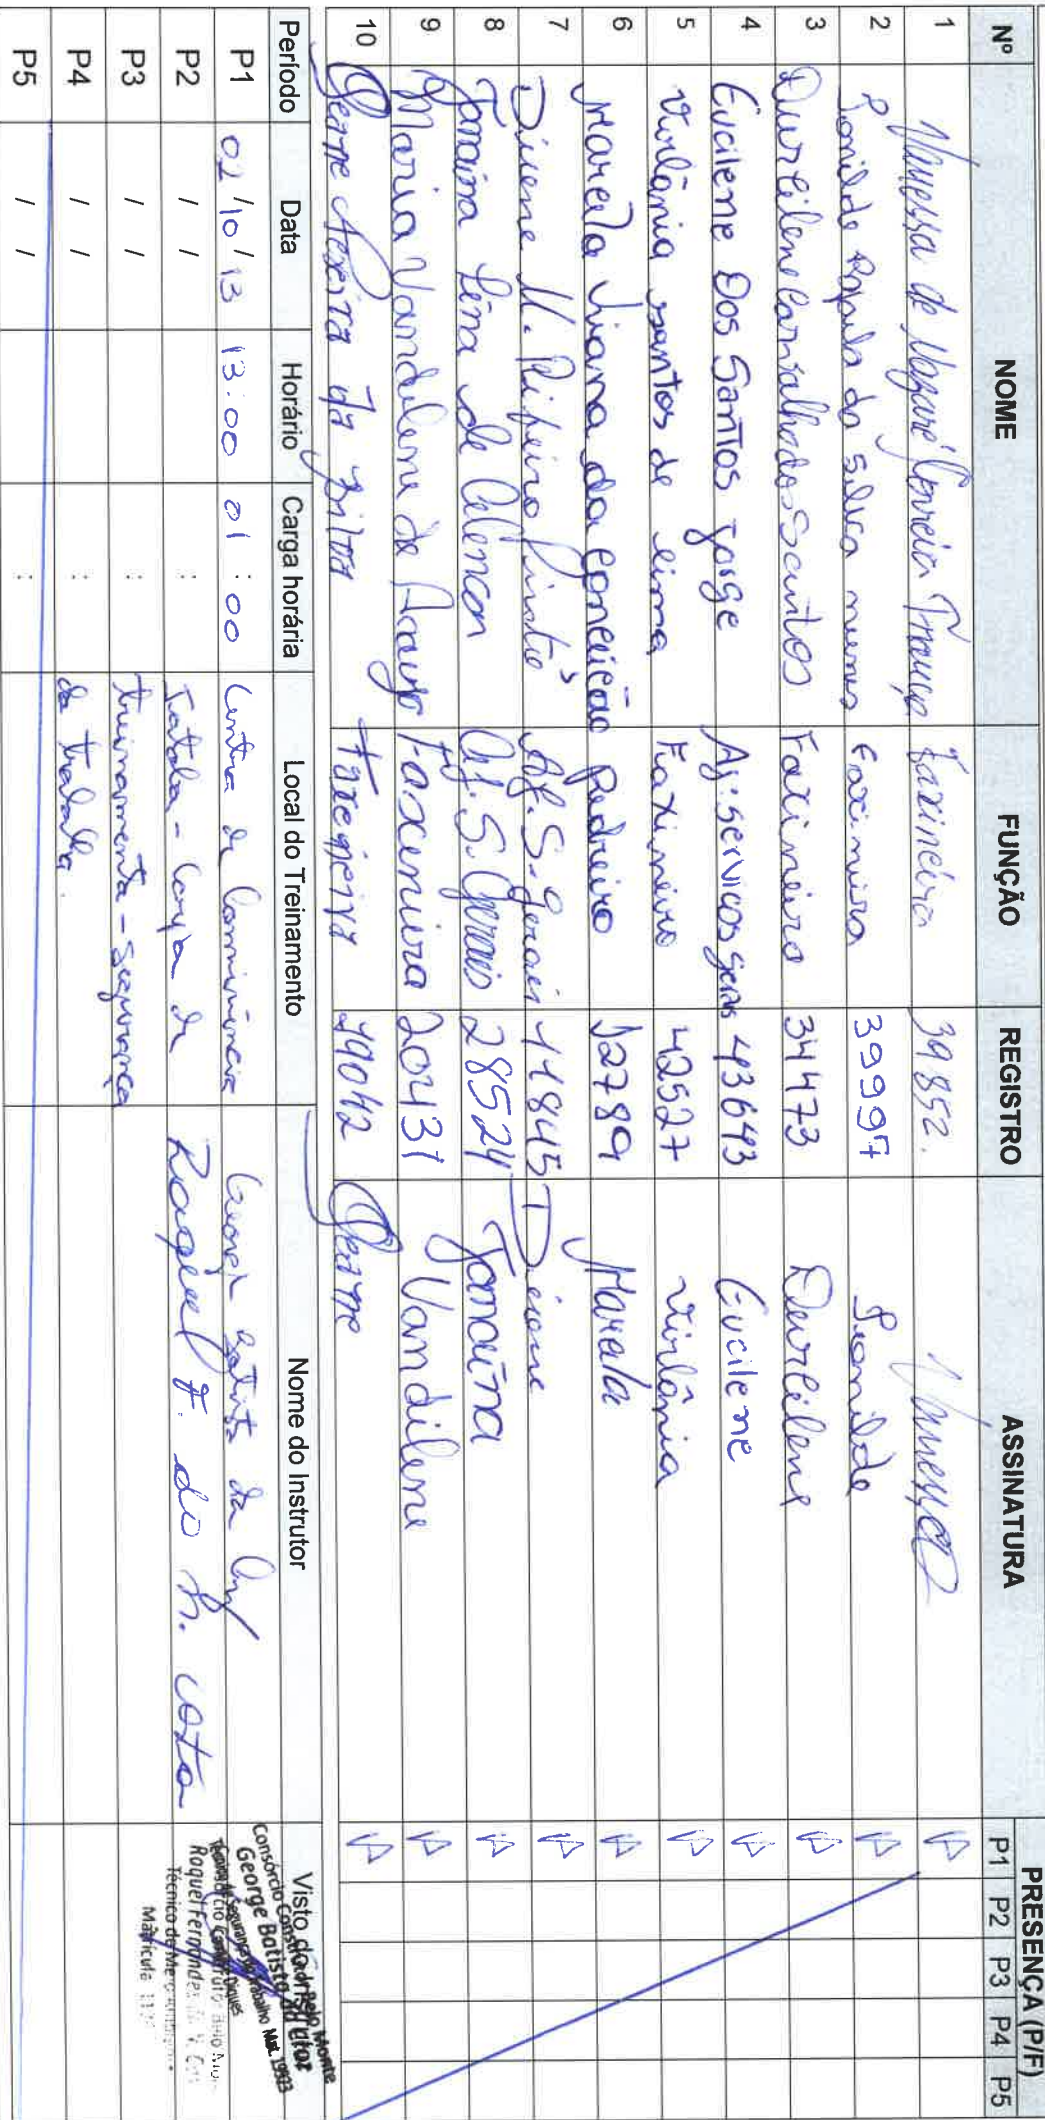 Nº NOME FUNÇÃO REGISTRO ASSINATURA PRESENÇA (P/F)
P1 P2 P3 P4 P5
1 Vanessa de Nazaré Correia França Faxineira 39852. Vanessa P
2 Leonilde Rapula da Silva nunes Faxineira 39997 Leonilde P
3 Durcilene Carvalho dos Santos Faxineiro 34473 Durcilene P
4 Eucilene Dos Santos Jorge Aj: serviços gerais 43643 Eucilene P
5 Virlânia santos de lima Faxineiro 42527 Virlânia P
6 Marcela Viana da Conceição Pedreiro 32789 Marcela P
7 Diene M. Ribeiro Aj. S. gerais 44845 Diene P
8 Janaina Lima de Alencar Aj. S. Gerais 28524 Janaína P
9 Maria Vandilene de Araujo Faxeneira 20431 Vandilene P
10 Geane da Silva Faxineira 49042 Geane P
Período Data Horário Carga horária Local do Treinamento Nome do Instrutor Visto do Instrutor
P1 02/10/13 13:00 01:00 Centro de Convivência George Batista da Cruz
P2 / / : de Raquel F. do N. Costa
P3 / / : treinamento - Segurança
P4 / / : do trabalho.
P5 / / :
Consórcio Construtor Belo Monte
George Batista da Cruz
Técnico de Segurança do Trabalho Mat. 19923
Raquel Fernandes
Técnico de
Matrícula